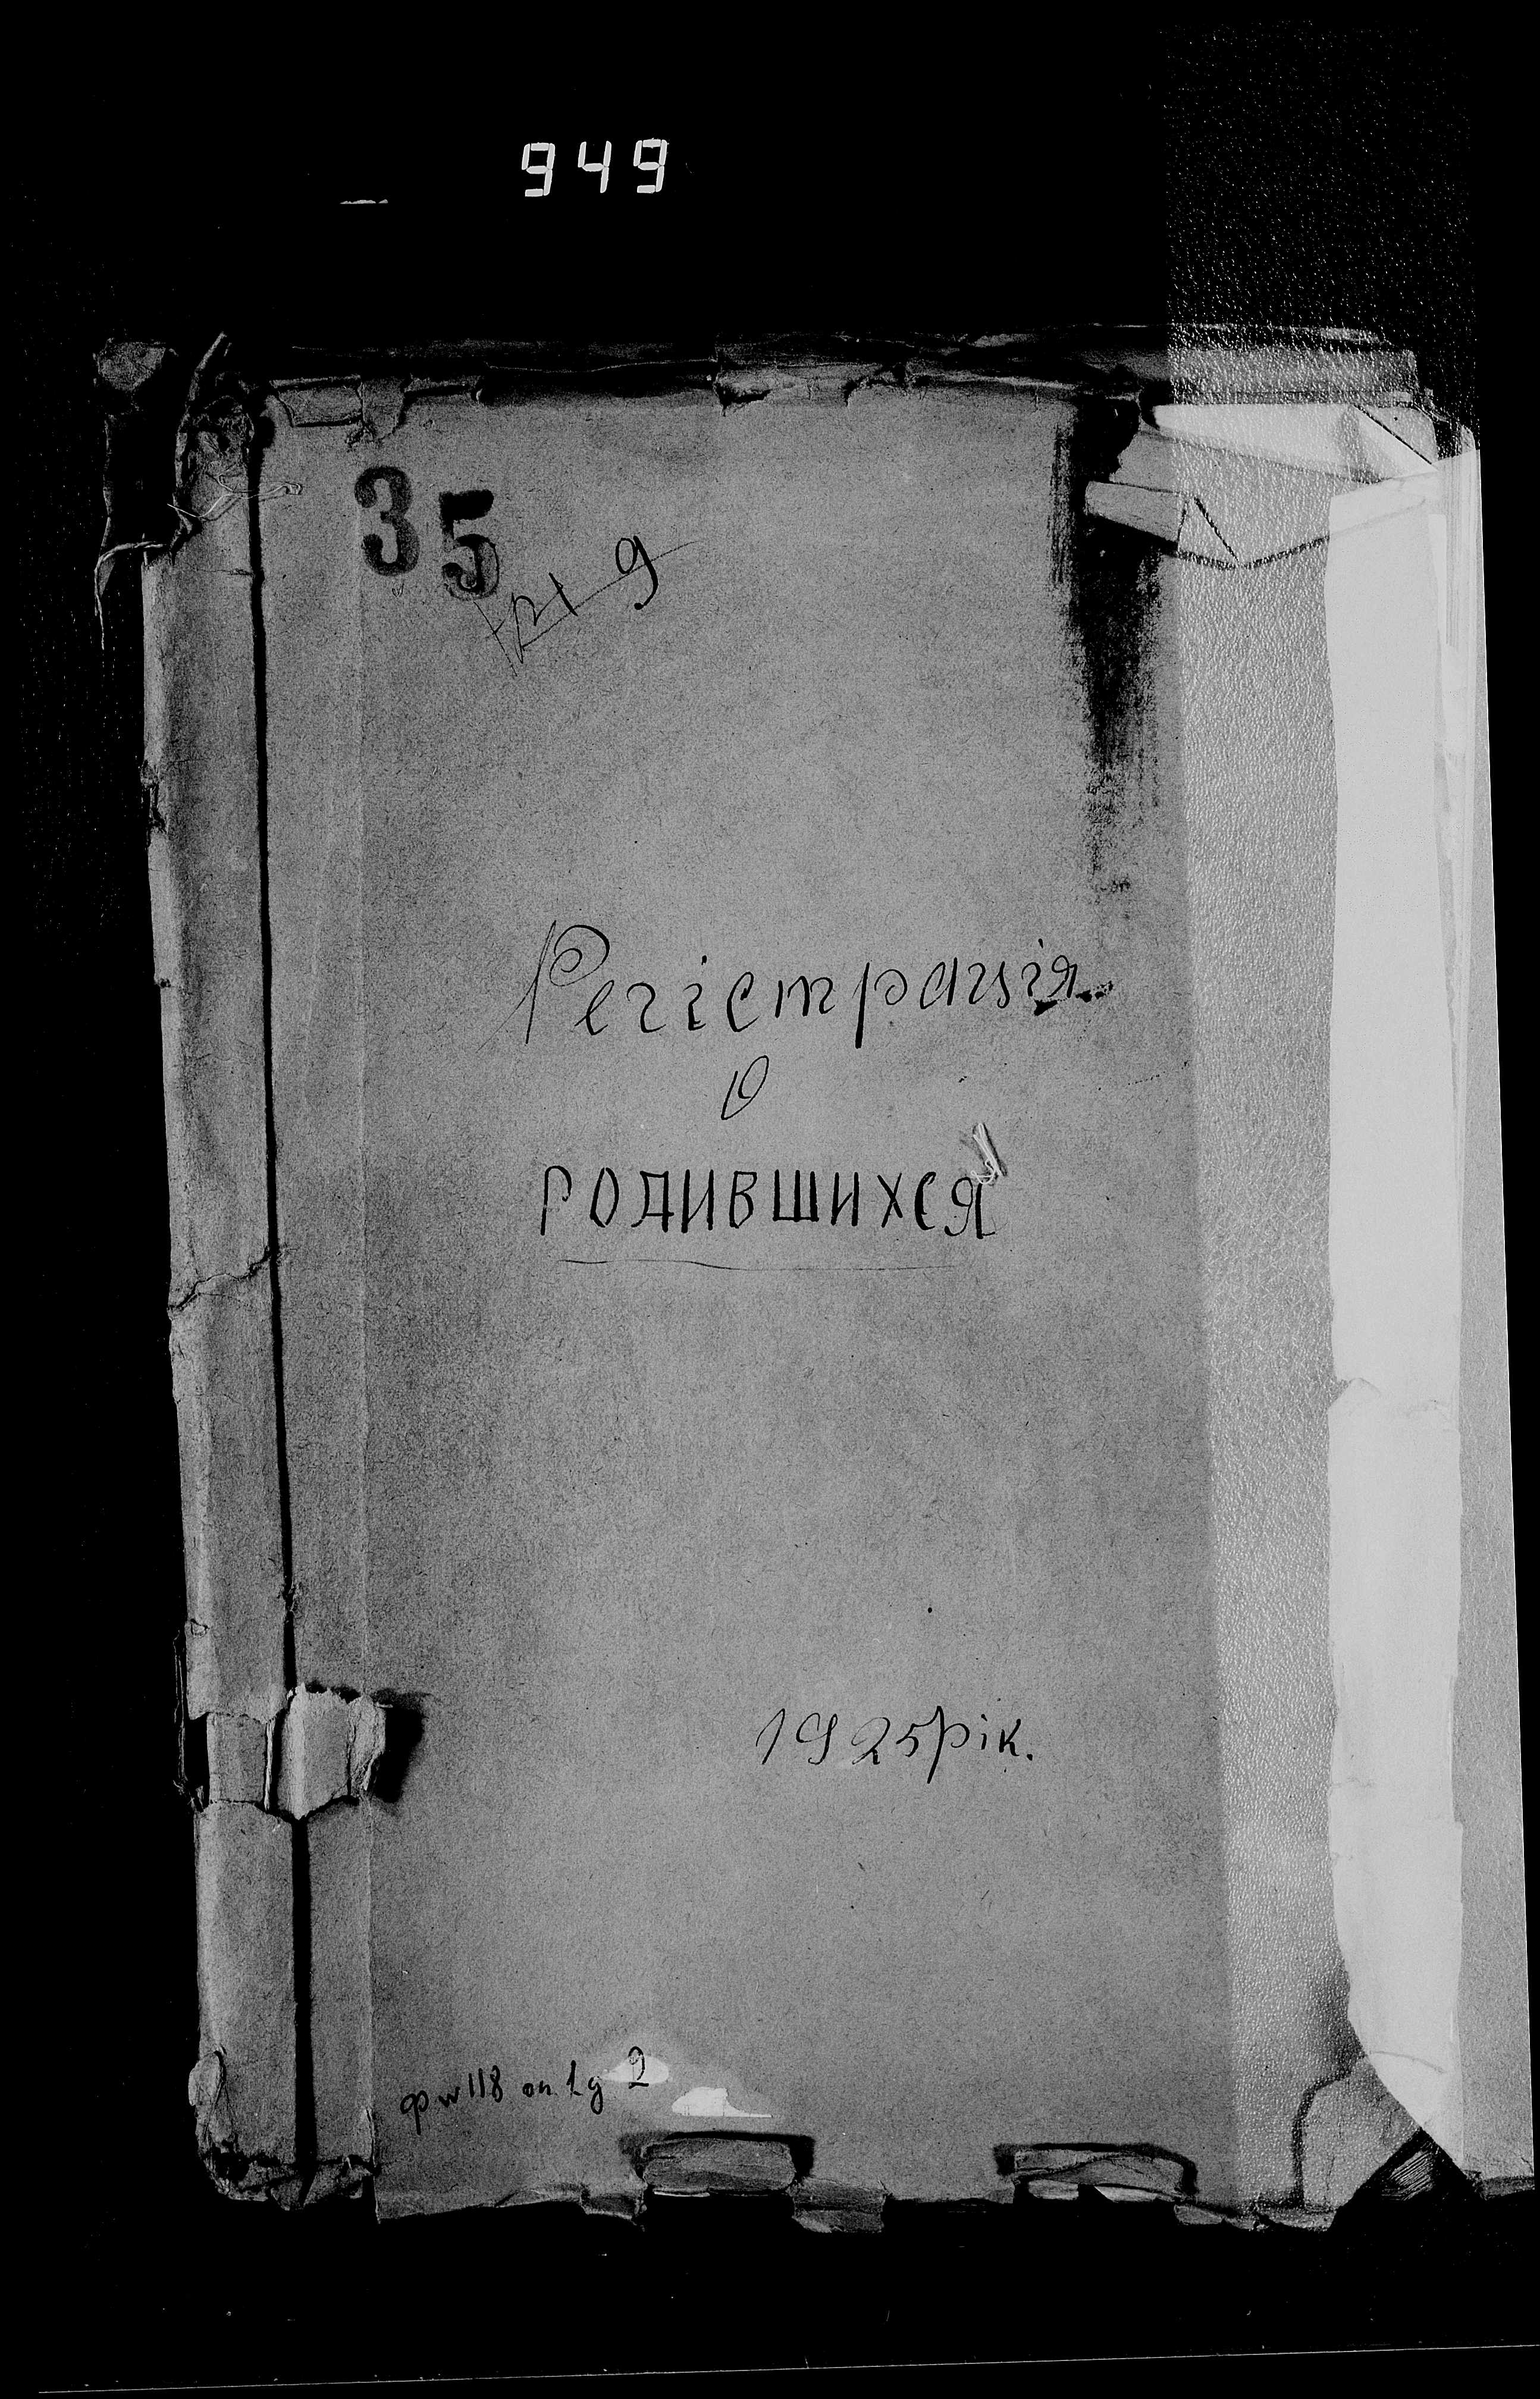 949
35
9
Регістрація
о
РОДИВШИХСЯ
1925 рік.
ф. N 118 оп. 1 д 2